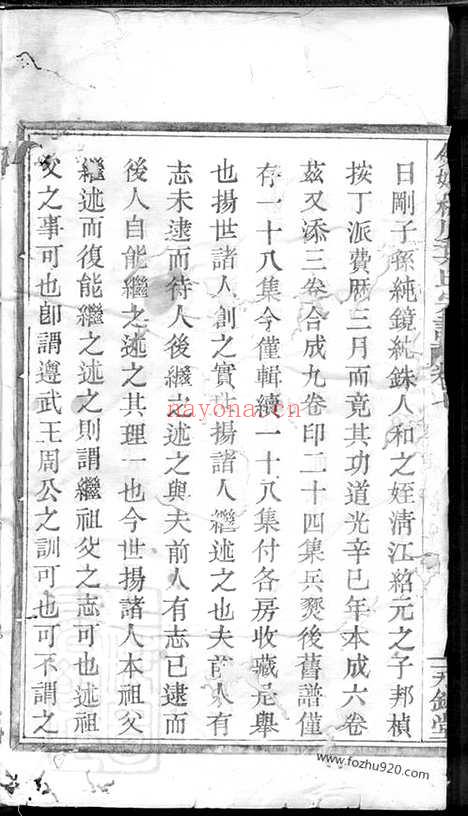 日剛子孫純鏡純銖人和之姪淸江紹元之子邦楨
按丁派費厯三月而竟其功道光辛巳年本成六卷
茲又添三卷合成九卷印二十四集兵燹後舊譜僅
存一十八集今僅輯續一十八集付各房收藏是舉
也揚世諸人創之實 揚諸人繼述之也夫前人有
志未逮而待人後繼之述之與夫前人有志已逮而
後人自能繼之述之其理一也今世揚諸人本祖父
繼述而復能繼之述之則謂繼祖父之志可也述祖
父之事可也卽謂遵武王周公之訓可也可不謂之
氏宗譜 卷七
nayona.cn
www.fozhu920.com